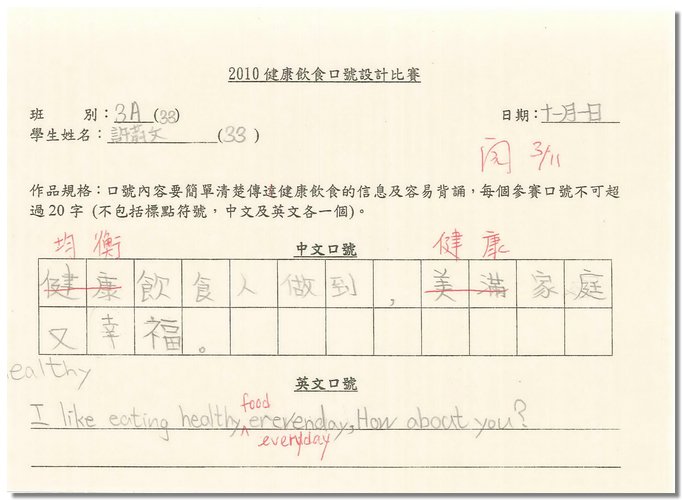 2010 健康飲食口號設計比賽
班 別：3A (33) 日期：十一月一日
學生姓名：許蔚文 (33)
閱 3/11
作品規格：口號內容要簡單清楚傳達健康飲食的信息及容易背誦，每個參賽口號不可超
過20字 (不包括標點符號，中文及英文各一個)。
均衡 健康
中文口號
健康飲食人人做到，美滿家庭
又幸福。
ealthy
英文口號
food
I like eating healthy erevenday, How about you?
everyday